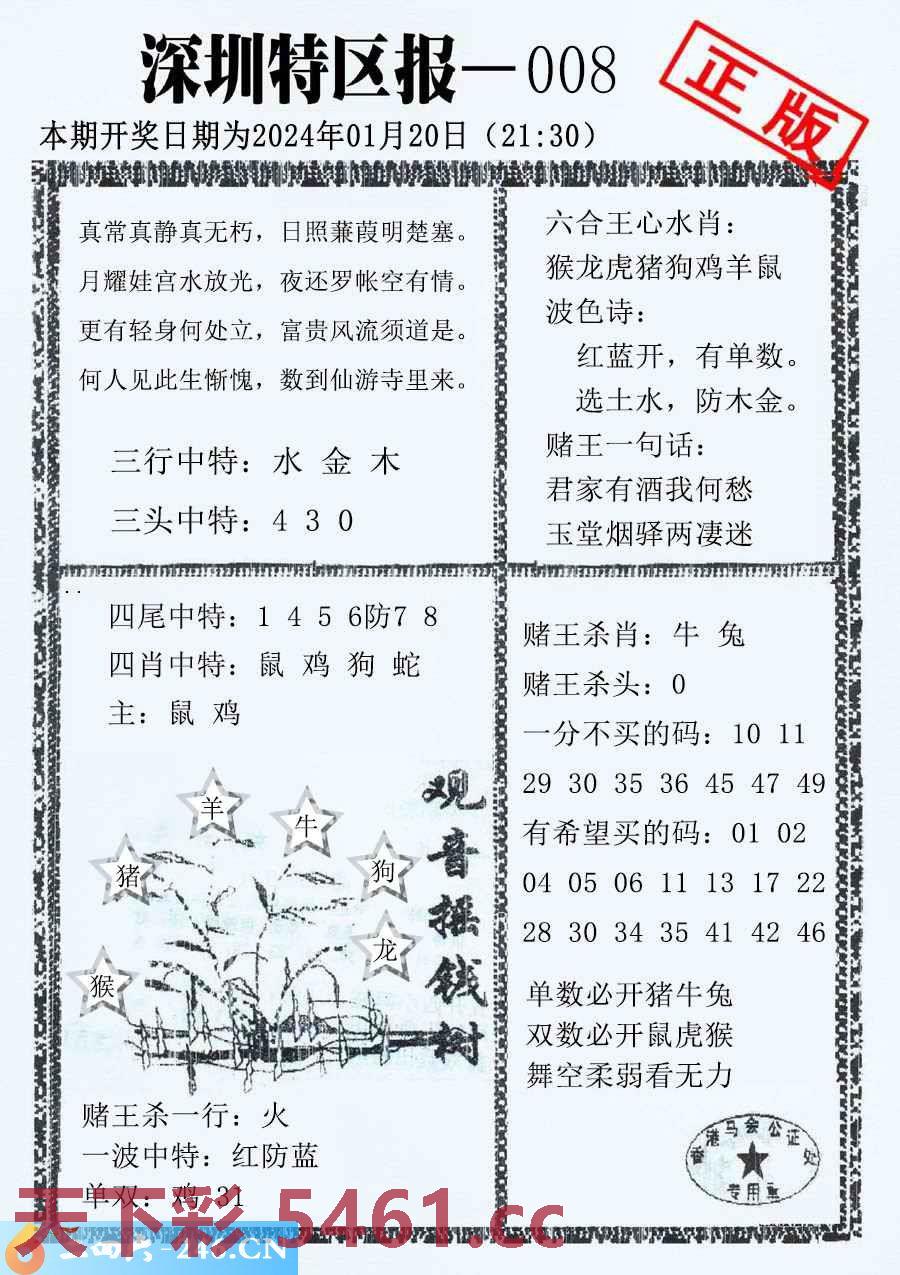 深圳特区报—008
正版
本期开奖日期为2024年01月20日（21:30）
真常真静真无朽，日照蒹葭明楚塞。
月耀娃宫水放光，夜还罗帐空有情。
更有轻身何处立，富贵风流须道是。
何人见此生惭愧，数到仙游寺里来。
三行中特：水 金 木
三头中特：4 3 0
六合王心水肖：
猴龙虎猪狗鸡羊鼠
波色诗：
红蓝开，有单数。
选土水，防木金。
赌王一句话：
君家有酒我何愁
玉堂烟驿两凄迷
四尾中特：1 4 5 6防7 8
四肖中特：鼠 鸡 狗 蛇
主：鼠 鸡
观音摇钱树
羊
牛
猪
狗
龙
猴
赌王杀一行：火
一波中特：红防蓝
单双：鸡 31
赌王杀肖：牛 兔
赌王杀头：0
一分不买的码：10 11
29 30 35 36 45 47 49
有希望买的码：01 02
04 05 06 11 13 17 22
28 30 34 35 41 42 46
单数必开猪牛兔
双数必开鼠虎猴
舞空柔弱看无力
香港马会公证处
专用章
天下彩 5461.cc
-246.CN